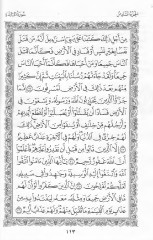 الجزء السادس
سورة المائدة
مِنْ أَجْلِ ذَٰلِكَ كَتَبْنَا عَلَىٰ بَنِي إِسْرَائِيلَ أَنَّهُ مَن قَتَلَ
نَفْسًا بِغَيْرِ نَفْسٍ أَوْ فَسَادٍ فِي الْأَرْضِ فَكَأَنَّمَا قَتَلَ
النَّاسَ جَمِيعًا وَمَنْ أَحْيَاهَا فَكَأَنَّمَا أَحْيَا النَّاسَ
جَمِيعًا وَلَقَدْ جَاءَتْهُمْ رُسُلُنَا بِالْبَيِّنَاتِ ثُمَّ إِنَّ كَثِيرًا
مِّنْهُم بَعْدَ ذَٰلِكَ فِي الْأَرْضِ لَمُسْرِفُونَ ٣٢ إِنَّمَا جَزَاءُ
الَّذِينَ يُحَارِبُونَ اللَّهَ وَرَسُولَهُ وَيَسْعَوْنَ فِي
الْأَرْضِ فَسَادًا أَن يُقَتَّلُوا أَوْ يُصَلَّبُوا أَوْ تُقَطَّعَ
أَيْدِيهِمْ وَأَرْجُلُهُم مِّنْ خِلَافٍ أَوْ يُنفَوْا مِنَ الْأَرْضِ
ذَٰلِكَ لَهُمْ خِزْيٌ فِي الدُّنْيَا وَلَهُمْ فِي الْآخِرَةِ
عَذَابٌ عَظِيمٌ ٣٣ إِلَّا الَّذِينَ تَابُوا مِن قَبْلِ أَن تَقْدِرُوا
عَلَيْهِمْ فَاعْلَمُوا أَنَّ اللَّهَ غَفُورٌ رَّحِيمٌ ٣٤ يَا أَيُّهَا الَّذِينَ
آمَنُوا اتَّقُوا اللَّهَ وَابْتَغُوا إِلَيْهِ الْوَسِيلَةَ وَجَاهِدُوا
فِي سَبِيلِهِ لَعَلَّكُمْ تُفْلِحُونَ ٣٥ إِنَّ الَّذِينَ كَفَرُوا لَوْ
أَنَّ لَهُم مَّا فِي الْأَرْضِ جَمِيعًا وَمِثْلَهُ مَعَهُ لِيَفْتَدُوا بِهِ مِنْ
عَذَابِ يَوْمِ الْقِيَامَةِ مَا تُقُبِّلَ مِنْهُمْ وَلَهُمْ عَذَابٌ أَلِيمٌ ٣٦
١١٣